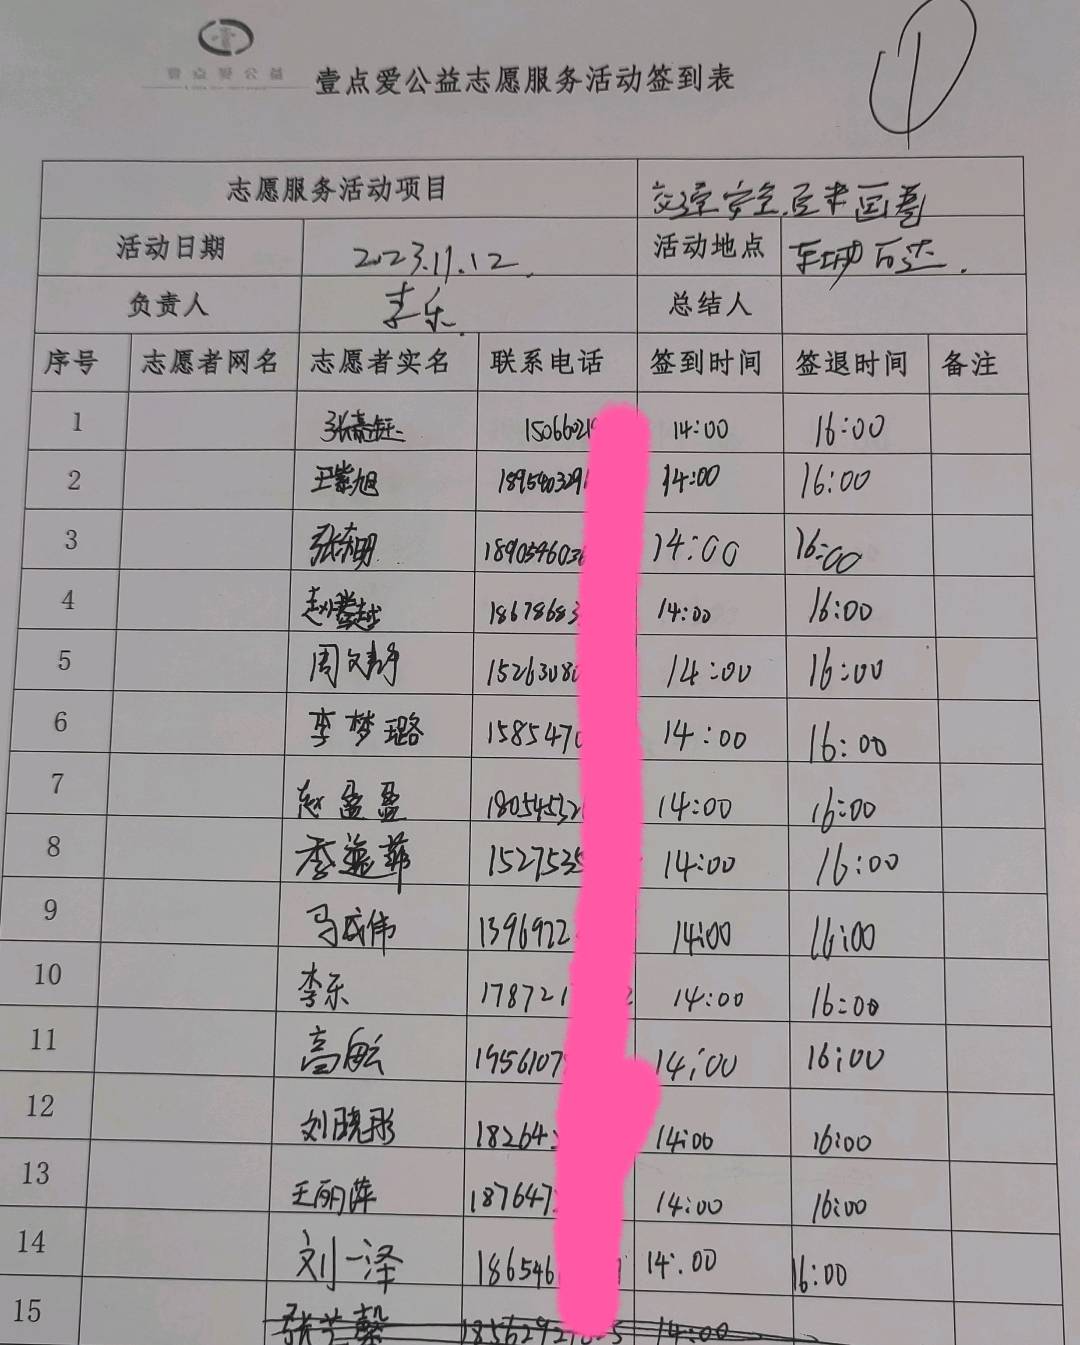 壹点爱公益
壹点爱公益志愿服务活动签到表
①
志愿服务活动项目 交通安全,
活动日期 2023.11.12. 活动地点 万达.
负责人 李乐. 总结人
序号 志愿者网名 志愿者实名 联系电话 签到时间 签退时间 备注
1 1506602 14:00 16:00
2 王紫旭 189540329 14:00 16:00
3 189054603 14:00 16:00
4 18678683 14:00 16:00
5 周文静 1526308 14:00 16:00
6 李梦璐 1585470 14:00 16:00
7 赵盈盈 18054532 14:00 16:00
8 1527535 14:00 16:00
9 马成伟 1396922 14:00 16:00
10 李乐 178721 14:00 16:00
11 1956107 14:00 16:00
12 刘晓彤 18264 14:00 16:00
13 王丽萍 187647 14:00 16:00
14 刘一泽 186546 14:00 16:00
15 14:00